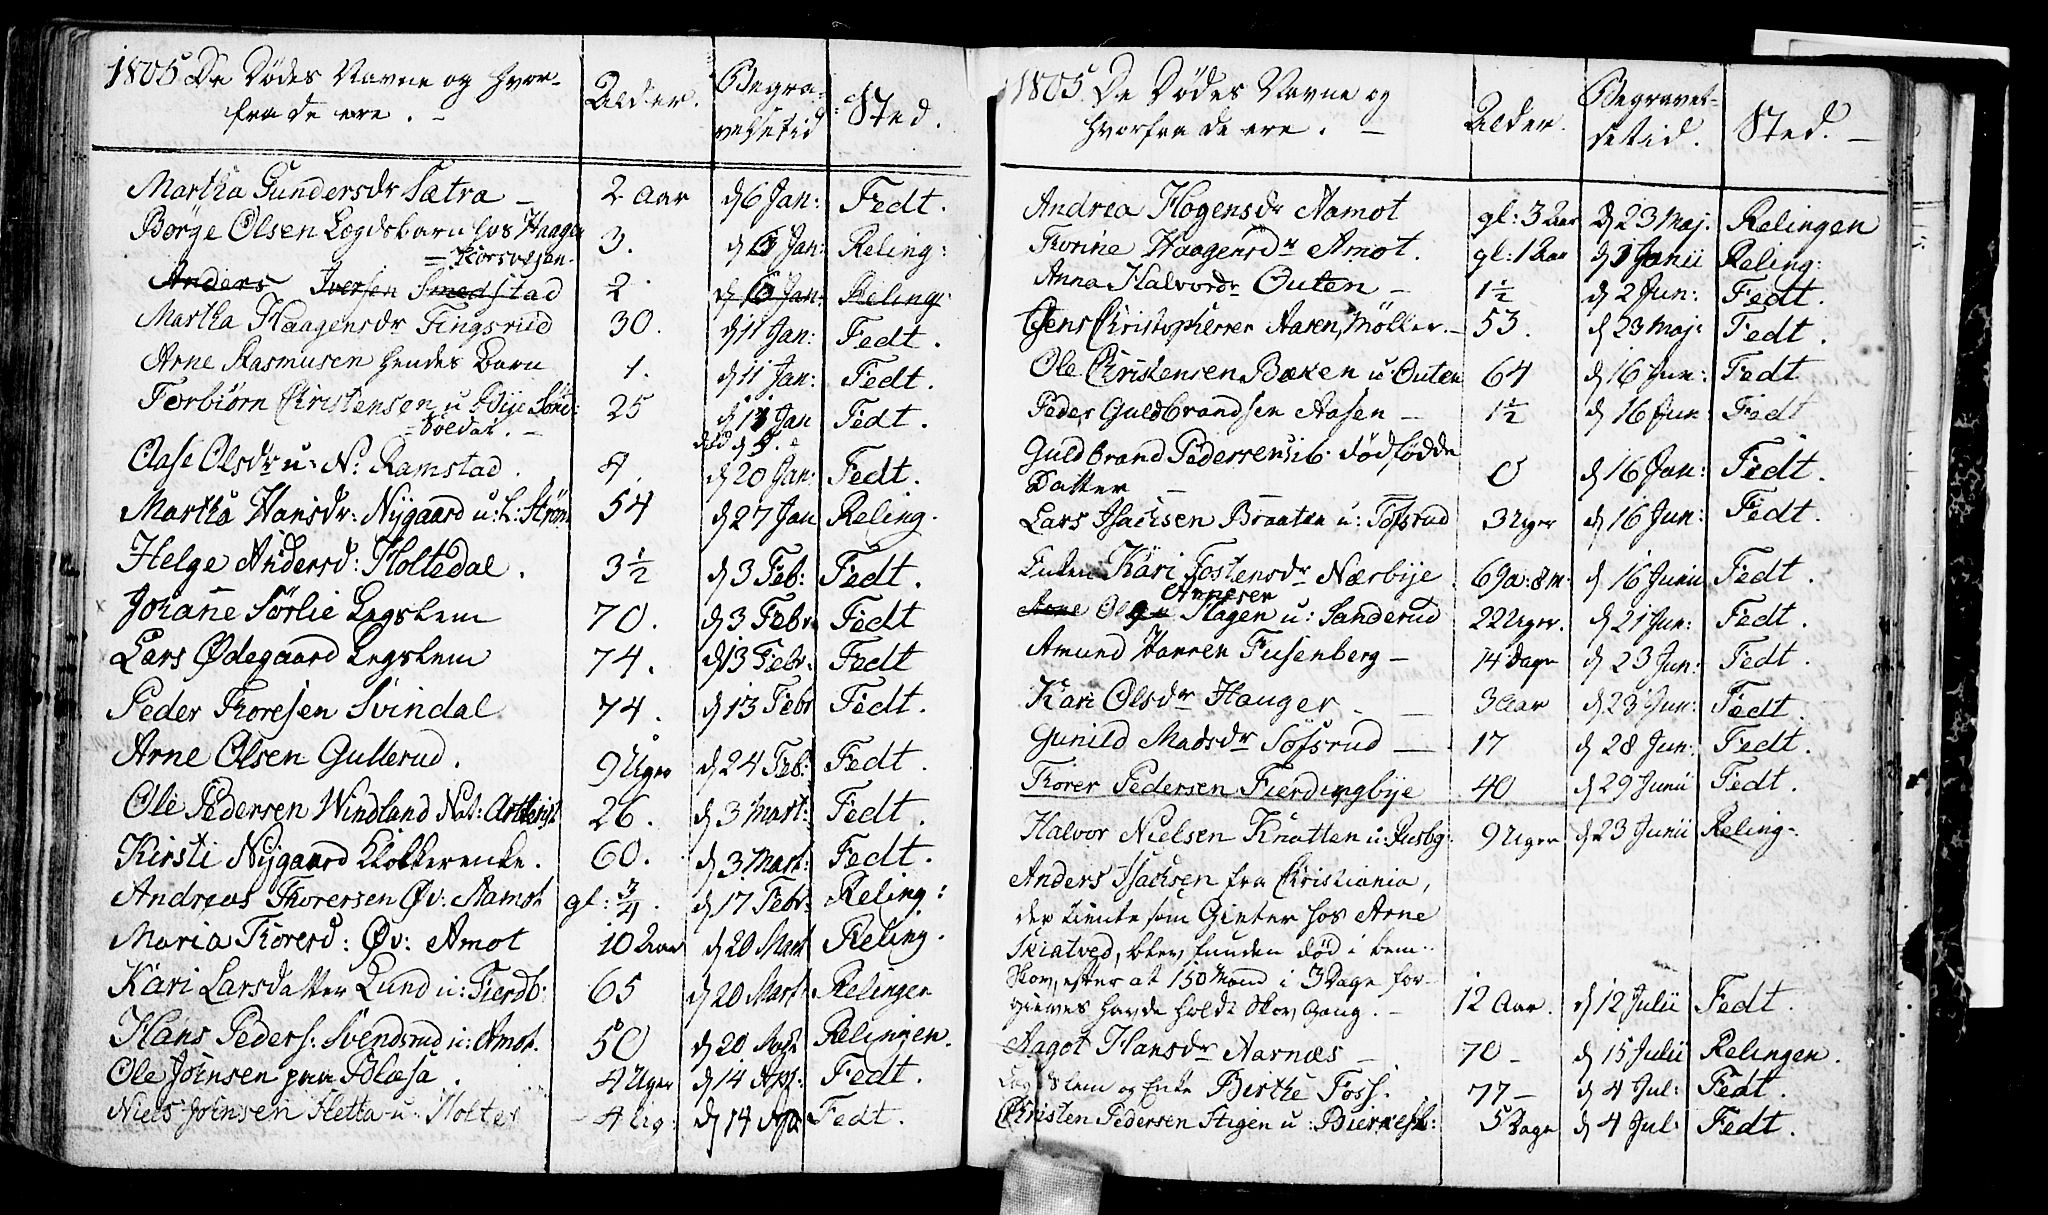 1805 De Dødes Navne og hvor-
fra de ere. -
Alder.
Begra-
velsetid
Sted.
Martha Gundersdr Sætra - 2 Aar d 6 Jan: Fedt.
Børge Olsen Legdsbarn hos Haagen 3. d 6 Jan: Reling:
= Korsvegen.
Anders Iversen Smedstad 2 d 6 Jan: Reling:
Martha Haagensdr Tingsrud 30. d 11 Jan: Fedt.
Arne Rasmusen hendes Barn 1. d 11 Jan: Fedt.
Torbiørn Christensen u Bye Søn: 25 d 11 Jan Fedt.
= Soldat. -
død d 5.
Aase Olsdr u: N. Ramstad. 4. d 20 Jan: Fedt.
Martha Hansdr: Nygaard u: L: Strøm 54 d 27 Jan Reling.
Helge Andersd: Holtedal. 3 1/2 d 3 Feb: Fedt.
Johane Sørlie Legslem 70. d 3 Febr Fedt
Lars Ødegaard Legslem 74. d 13 Febr. Fedt
Peder Thoresen Svindal 74. d 13 Febr Fedt.
Arne Olsen Gullerud. 9 Uger d 24 Feb: Fedt.
Ole Pedersen Windland Nat: 26. d 3 Mart: Fedt.
Kirsti Nygaard Klokkerenke. 60. d 3 Mart: Fedt.
Andreas Thorersen Øv: Aamot gl: 3/4. d 17 Febr. Reling:
Maria Thorersd: Øv: Amot 10 Aar d 20 Mart Reling.
Kari Larsdatter Lund u: Fierdb: 65 d 20 Mart Relingen
Hans Peders: Svendsrud u: Amot. 50 d 20 Relingen.
Ole Johnsen paa Blæsa. 4 Uger d 14 Apr: Fedt.
Niels Johnsen Sletta u: Holter 4 Ug: d 14 Apr Fedt.
1805. De Dødes Navne og
hvorfra de ere. -
Alder.
Begravel-
setid.
Sted. -
Andrea Hogensdr Aamot gl: 3 Aar d 23 Maj: Relingen
Thorine Haagensdr Amot. gl: 1 Aar d 1 Junii Reling:
Anna Halvordr Outen - 1 1/2 d 2 Jun: Fedt.
Jens Christophersen Aasen, Møller. - 53. d 23 Maj: Fedt.
Ole Christensen Bæken u: Outen 64 d 16 Jun: Fedt
Peder Guldbrandsen Aasen - 1 1/2 d 16 Jun Fedt
Guldbrand Pedersens ib. dødfødde
Datter - 0 d 16 Jun: Fedt.
Lars Isachsen Braaten u: Tofsrud 3 Uger d 16 Jun: Fedt.
Enken Kari Tostensdr Nærbye 69 a: 8 m. d 16 Junii Fedt.
Annesen
Arne Olsen Hagen u: Sanderud 22 Uger. d 21 Jun: Fedt.
Amund Hansen Fusenberg - 14 Dage d 23 Jun: Fedt.
Kari Olsdr Hauger - 3 Aar d 23 Jun: Fedt.
Gunild Madsdr Tofsrud - 17 d 28 Jun: Fedt.
Thorer Pedersen Fierdingbye 40 d 29 Junii Fedt.
Halvor Nielsen Knatten u: Rusbg: 9 Uger d 23 Junii Reling.
Anders Isachsen fra Christiania,
der tiente som Gieter hos Arne
Skiatved, blev funden død i bem:
Skov, efter at 150 Mand i 3 Dage for-
gieves havde holdt Skov Gang. - 12 Aar. d 12 Julii Fedt.
Aagot Hansdr Aarnæs - 70 - d 15 Julii Relingen.
Legdslem og Enke Birthe Foss. 77 - d 4 Jul: Fedt.
Christen Pedersen Stigen u: 5 Dage d 4 Jul: Fedt.